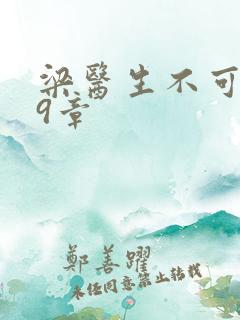 梁醫生不可
9章
鄭善躍
未经同意禁止转载